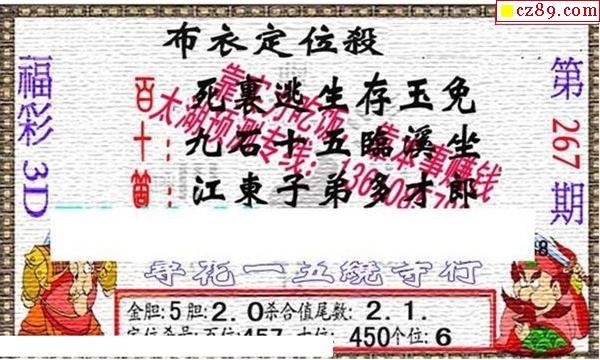 cz89.com
布衣定位殺
福彩3D
第267期
百：死裏逃生存玉免
十：九石十五臨溪坐
箇：江東子弟多才郎
尋花一五繞寺行
金胆:5胆:2.0杀合值尾数:2.1.
定位杀号:百位:457十位:450个位:6